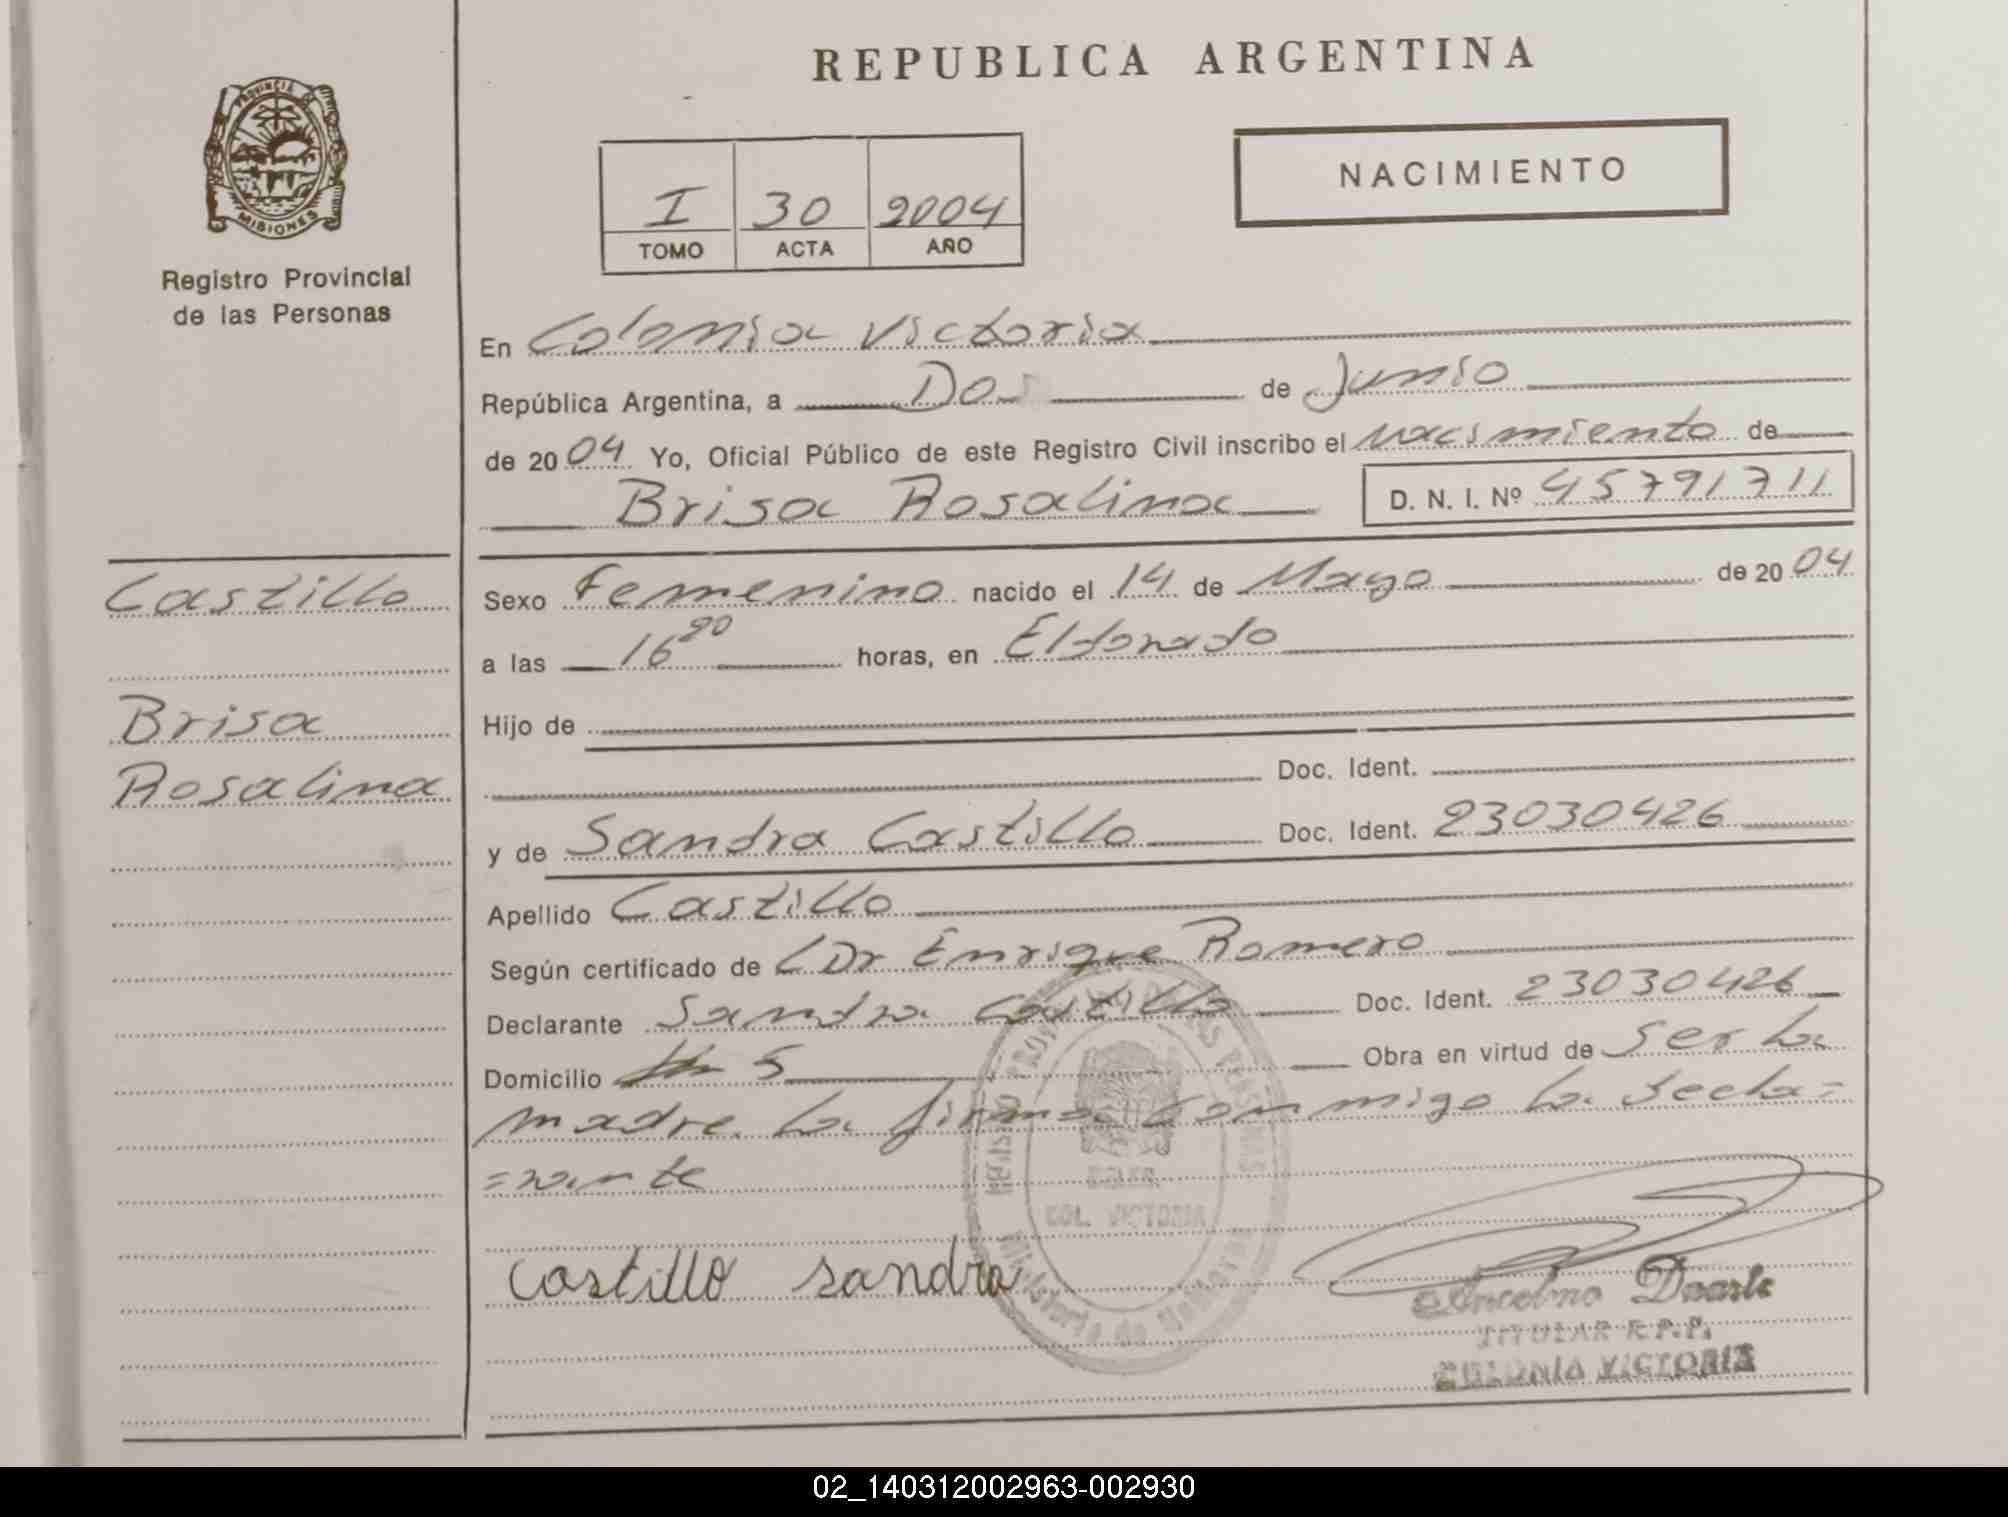 REPUBLICA ARGENTINA
PROVINCIA DE
MISIONES
Registro Provincial
de las Personas
I 30 2004
TOMO ACTA AÑO
NACIMIENTO
En Colonia Victoria
República Argentina, a Dos de Junio
de 2004 Yo, Oficial Público de este Registro Civil inscribo el nacimiento de
Brisa Rosalina D. N. I. Nº 45791711
Castillo
Brisa
Rosalina
Sexo Femenino nacido el 14 de Mayo de 2004
a las 16 20 horas, en Eldorado
Hijo de
Doc. Ident.
y de Sandra Castillo Doc. Ident. 23030426
Apellido Castillo
Según certificado de Dr Enrique Romero
Declarante Sandra Castillo Doc. Ident. 23030426
Domicilio 5 Obra en virtud de ser la
madre. La firma conmigo la decla=
=rante
COL. VICTORIA
Castillo Sandra
Anselmo Duarte
TITULAR R.P.P.
COLONIA VICTORIA
02_140312002963-002930